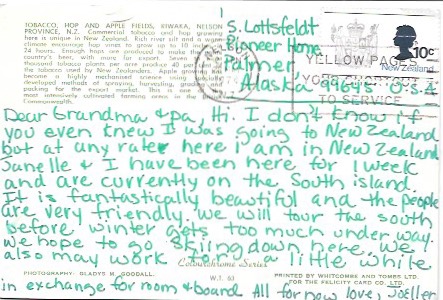 TOBACCO, HOP AND APPLE FIELDS, RIWAKA, NELSON
PROVINCE, N.Z. Commercial tobacco and hop growing
here is unique in New Zealand. Rich river silt and a warm
climate encourage hop vines to grow up to 10 inches
24 hours. Enough hops are produced to make the
country's beer, with more for export. Seven
thousand tobacco plants per acre produce 40 per
the tobacco used by New Zealanders. Apple growing
become a highly mechanised science using
developed methods of spraying, harvesting, grading
packing for the export market. This is one of
most intensively cultivated farming areas in the
Commonwealth.
S. Lottsfeldt
Pioneer Home
Palmer
Alaska 99645 U.S.A
10c
New Zealand
YELLOW PAGES
TO SERVICE
Dear Grandma & pa, Hi. I don't know if
you even knew I was going to New Zealand
but at any rate here I am in New Zealand
Janelle & I have been here for 1 week
and are currently on the South island.
It is fantastically beautiful and the people
are very friendly. we will tour the south
before winter gets too much under way.
we hope to go skiing down here. We
also may work for a little while
Colourchrome Series
W.T. 63
PHOTOGRAPHY: GLADYS M. GOODALL.
PRINTED BY WHITCOMBE AND TOMBS LTD.
FOR THE FELICITY CARD CO. LTD.
in exchange for room & board. All for now love, Joellen